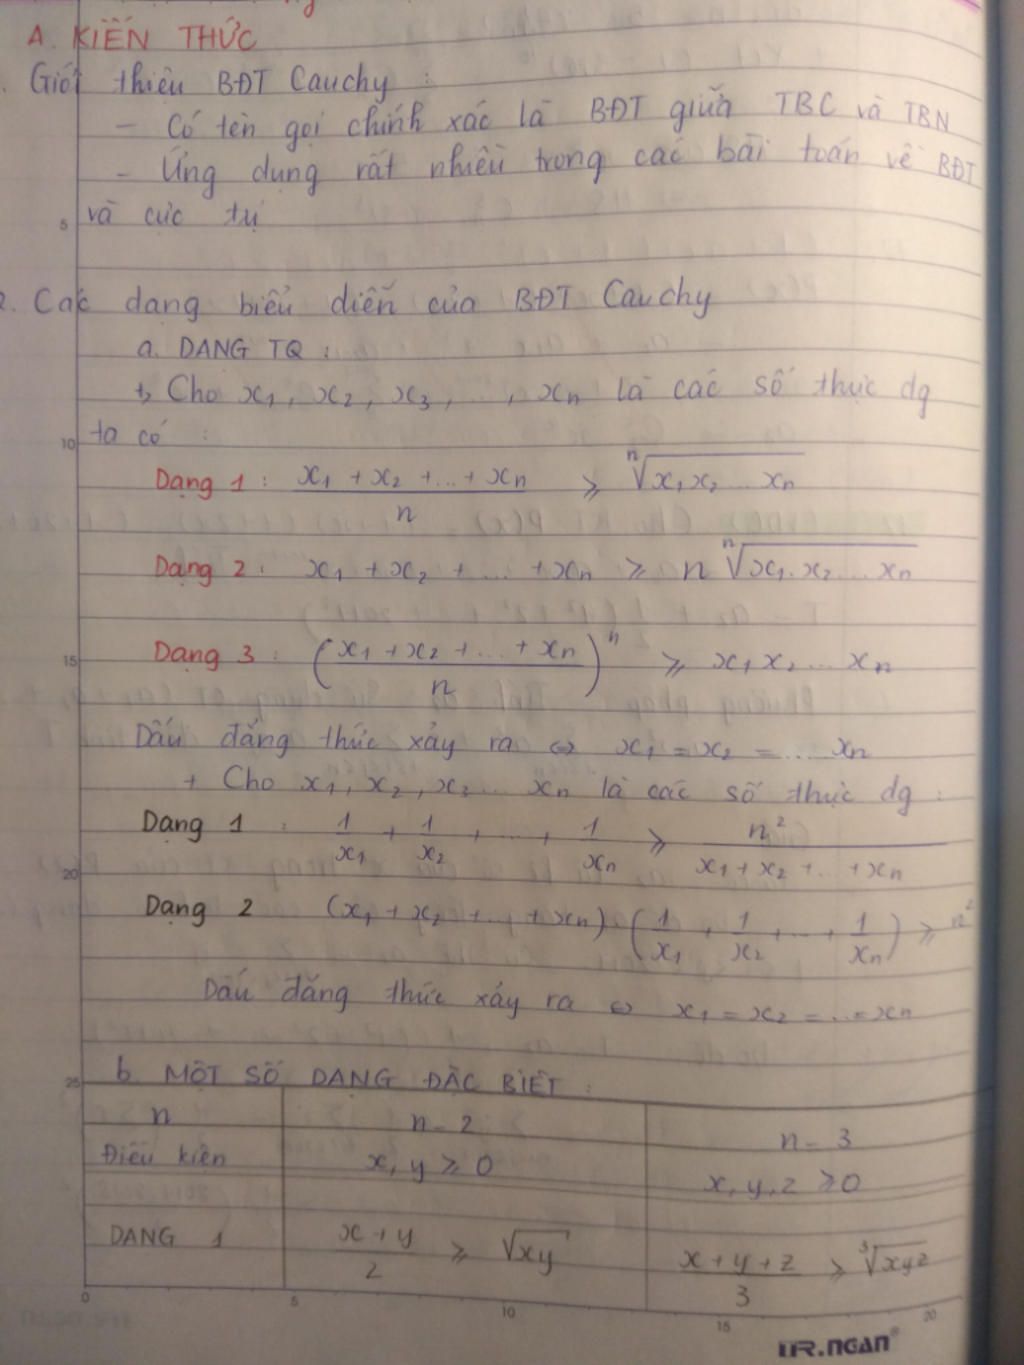 A. KIẾN THỨC
. Giới thiệu BĐT Cauchy :
- Có tên gọi chính xác là BĐT giữa TBC và TBN
- Ứng dụng rất nhiều trong các bài toán về BĐT
5 và cực trị
2. Các dạng biểu diễn của BĐT Cauchy
a. DẠNG TQ :
+, Cho x₁, x₂, x₃, ..., xₙ là các số thực dg
10 ta có :
Dạng 1 : (x₁ + x₂ + ... + xₙ)/n ≥ ⁿ√(x₁x₂ ... xₙ)
Dạng 2 : x₁ + x₂ + ... + xₙ ≥ n ⁿ√(x₁.x₂ ... xₙ)
15 Dạng 3 : ((x₁ + x₂ + ... + xₙ)/n)ⁿ ≥ x₁x₂ ... xₙ
Dấu đẳng thức xảy ra ⇔ x₁ = x₂ = .... xₙ
+ Cho x₁, x₂, x₃ ... xₙ là các số thực dg :
Dạng 1 : 1/x₁ + 1/x₂ + ... + 1/xₙ ≥ n²/(x₁ + x₂ + ... + xₙ)
20
Dạng 2 (x₁ + x₂ + ... + xₙ).(1/x₁ + 1/x₂ + ... + 1/xₙ) ≥ n²
Dấu đẳng thức xảy ra ⇔ x₁ = x₂ = ... = xₙ
25 b. MỘT SỐ DẠNG ĐẶC BIỆT :
n n = 2 n = 3
Điều kiện x, y ≥ 0 x, y, z ≥ 0
DẠNG 1 (x + y)/2 ≥ √(xy) (x + y + z)/3 ≥ ³√(xyz)
0 5 10 15 20
MR.NGAN®